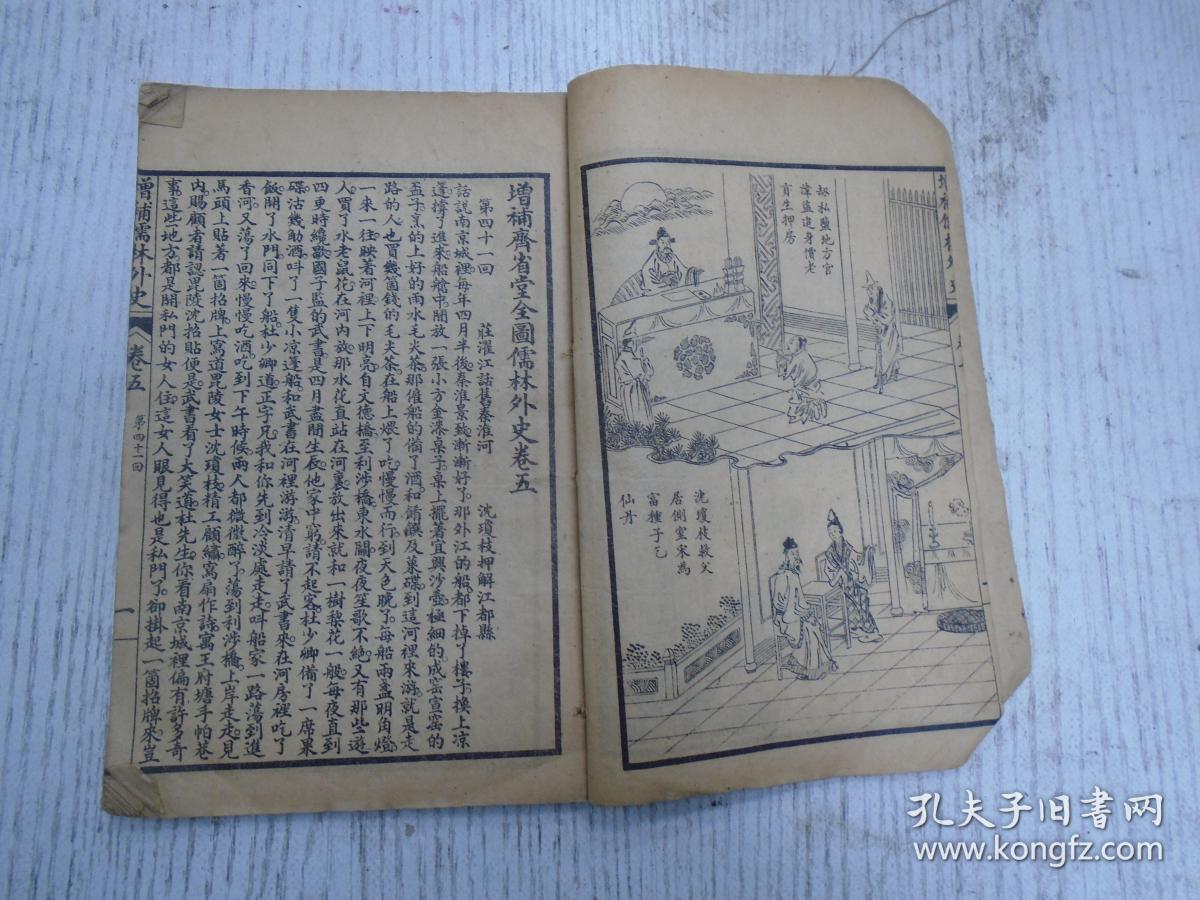 拏私鹽地方官
諱盜追身慣老
育生押房
沈瓊枝救父
居側室宋為
富種子乞
仙丹
增補齊省堂全圖儒林外史卷五
第四十一回
莊濯江話舊秦淮河
沈瓊枝押解江都縣
話說南京城裡每年四月半後秦淮景致漸漸好了那外江的船都下掉了樓子換上涼
蓬撐了進來船艙中間放一張小方金漆桌子桌上擺著宜興沙壺極細的成窑宣窑的
盃子烹的上好的雨水毛尖茶那僱船的備了酒和餚饌及菓碟到這河裡來游就是走
路的人也買幾個錢的毛尖茶在船上煨了吃慢慢而行到天色晚了每船兩盞明角燈
一來一往映著河裡上下明亮自文德橋至利涉橋東水關夜夜笙歌不絕又有那些遊
人買了水老鼠花在河內放那水花直站在河裏放出來就和一樹梨花一般每夜直到
四更時纔歇國子監的武書是四月盡間生辰他家中窮請不起客杜少卿備了一席果
碟沽幾觔酒呌了一隻小涼蓬船和武書在河裡游游清早請了武書來在河房裡吃了
飯開了水門同下了船杜少卿道正字兄我和你先到冷淡處走走呌船家一路蕩到進
香河又蕩了回來慢慢吃酒吃到下午時候兩人都微微醉了蕩到利涉橋上岸走走見
馬頭上貼著一箇招牌上寫道毘陵女士沈瓊枝精工顧繡寫扇作詩寓王府塘手帕巷
內賜顧者請認毘陵沈招貼便是武書看了大笑道杜先生你看南京城裡偏有許多奇
事這些地方都是開私門的女人住這女人眼見得也是私門了卻掛起一箇招牌來豈
增補儒林外史
卷五
第四十一回
一
孔夫子旧书网
www.kongfz.com